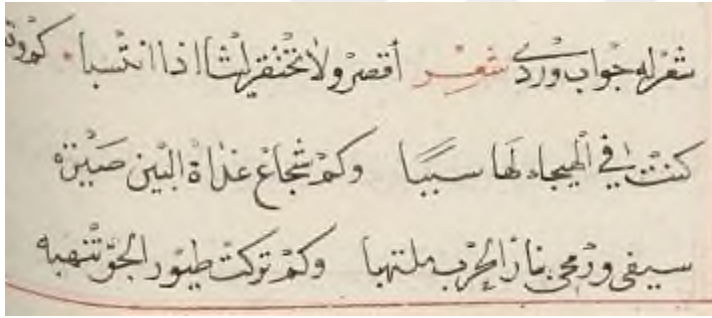 شعر له جواب ورد شعر أقصر ولا تحتقر ليثا اذا انتسبا كم وقعة
كنت في الهيجاء لها سببا وكم شجاع غداة البين صيّره
سيفى ورمحى بنار الحرب ملتهبا وكم تركت طيور الجو تنهبه